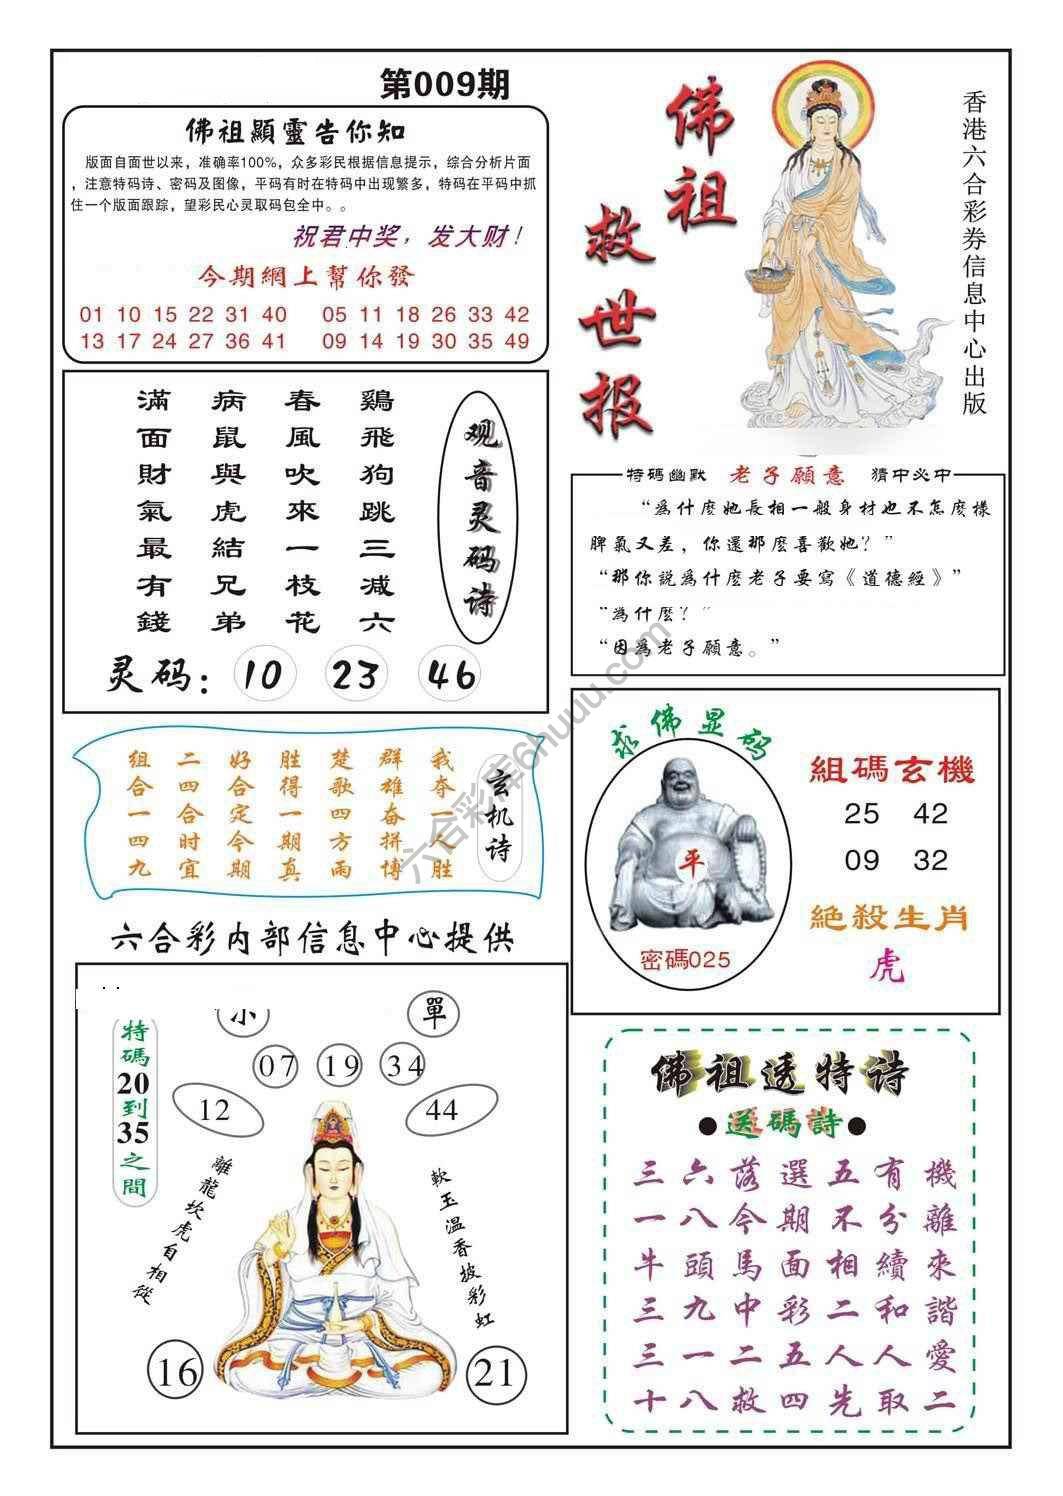 第009期
佛祖顯靈告你知
版面自面世以来，准确率100%，众多彩民根据信息提示，综合分析片面
，注意特码诗、密码及图像，平码有时在特码中出现繁多，特码在平码中抓
住一个版面跟踪，望彩民心灵取码包全中。。
祝君中奖，发大财！
今期網上幫你發
01 10 15 22 31 40 05 11 18 26 33 42
13 17 24 27 36 41 09 14 19 30 35 49
佛祖
救世报
香港六合彩券信息中心出版
观音灵码诗
鷄飛狗跳三减六
春風吹來一枝花
病鼠與虎結兄弟
滿面財氣最有錢
灵码：10 23 46
特碼幽默 老子願意 猜中必中
“為什麼她長相一般身材也不怎麼樣
脾氣又差，你還那麼喜歡她？”
“那你説為什麼老子要寫《道德經》”
“為什麼？”
“因為老子願意。”
玄机诗
我夺一胜
群雄奋拼博
楚歌四方雨
胜得一期真
好合定今期
二四合时宜
组合一四九
求佛显码
平
密碼025
組碼玄機
25 42
09 32
絶殺生肖
虎
六合彩内部信息中心提供
單
特碼20到35之間
07 19 34
12 44
離龍坎虎自相從
軟玉温香披彩虹
16 21
佛祖透特诗
●送碼詩●
三六落選五有機
一八今期不分離
牛頭馬面相續來
三九中彩二和諧
三一二五人人愛
十八救四先取二
六合彩库6huuu.com